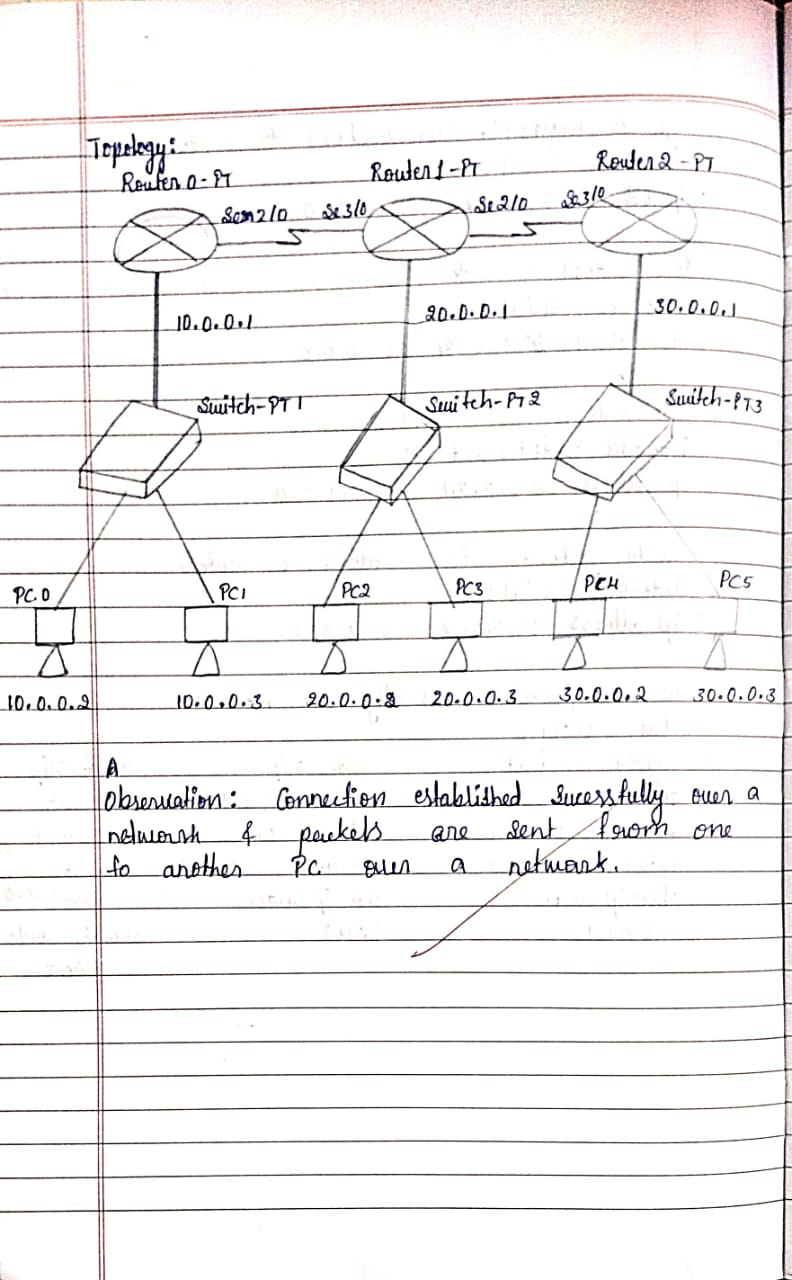 Topology:
Router 0-PT
Router 1-PT
Router 2-PT
Se 2/0
Se 3/0
Se 2/0
Se 3/0
10.0.0.1
20.0.0.1
30.0.0.1
Switch-PT 1
Switch-PT 2
Switch-PT 3
PC.0
PC1
PC2
PC3
PC4
PC5
10.0.0.2
10.0.0.3
20.0.0.2
20.0.0.3
30.0.0.2
30.0.0.3
A
Observation: Connection established Sucessfully over a
network & packets are sent from one
to another PC over a network.